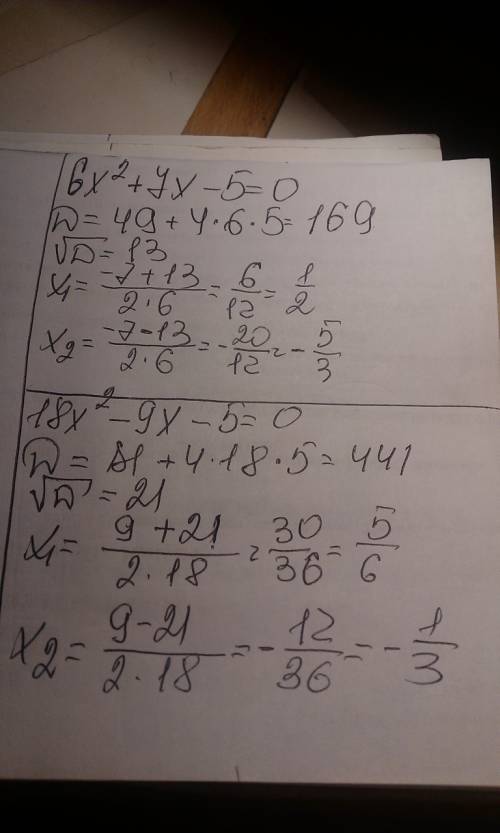 6x² + 7x - 5 = 0
D = 49 + 4·6·5 = 169
√D = 13
x₁ = (-7 + 13)/(2·6) = 6/12 = 1/2
x₂ = (-7 - 13)/(2·6) = -20/12 = -5/3
18x² - 9x - 5 = 0
D = 81 + 4·18·5 = 441
√D = 21
x₁ = (9 + 21)/(2·18) = 30/36 = 5/6
x₂ = (9 - 21)/(2·18) = -12/36 = -1/3